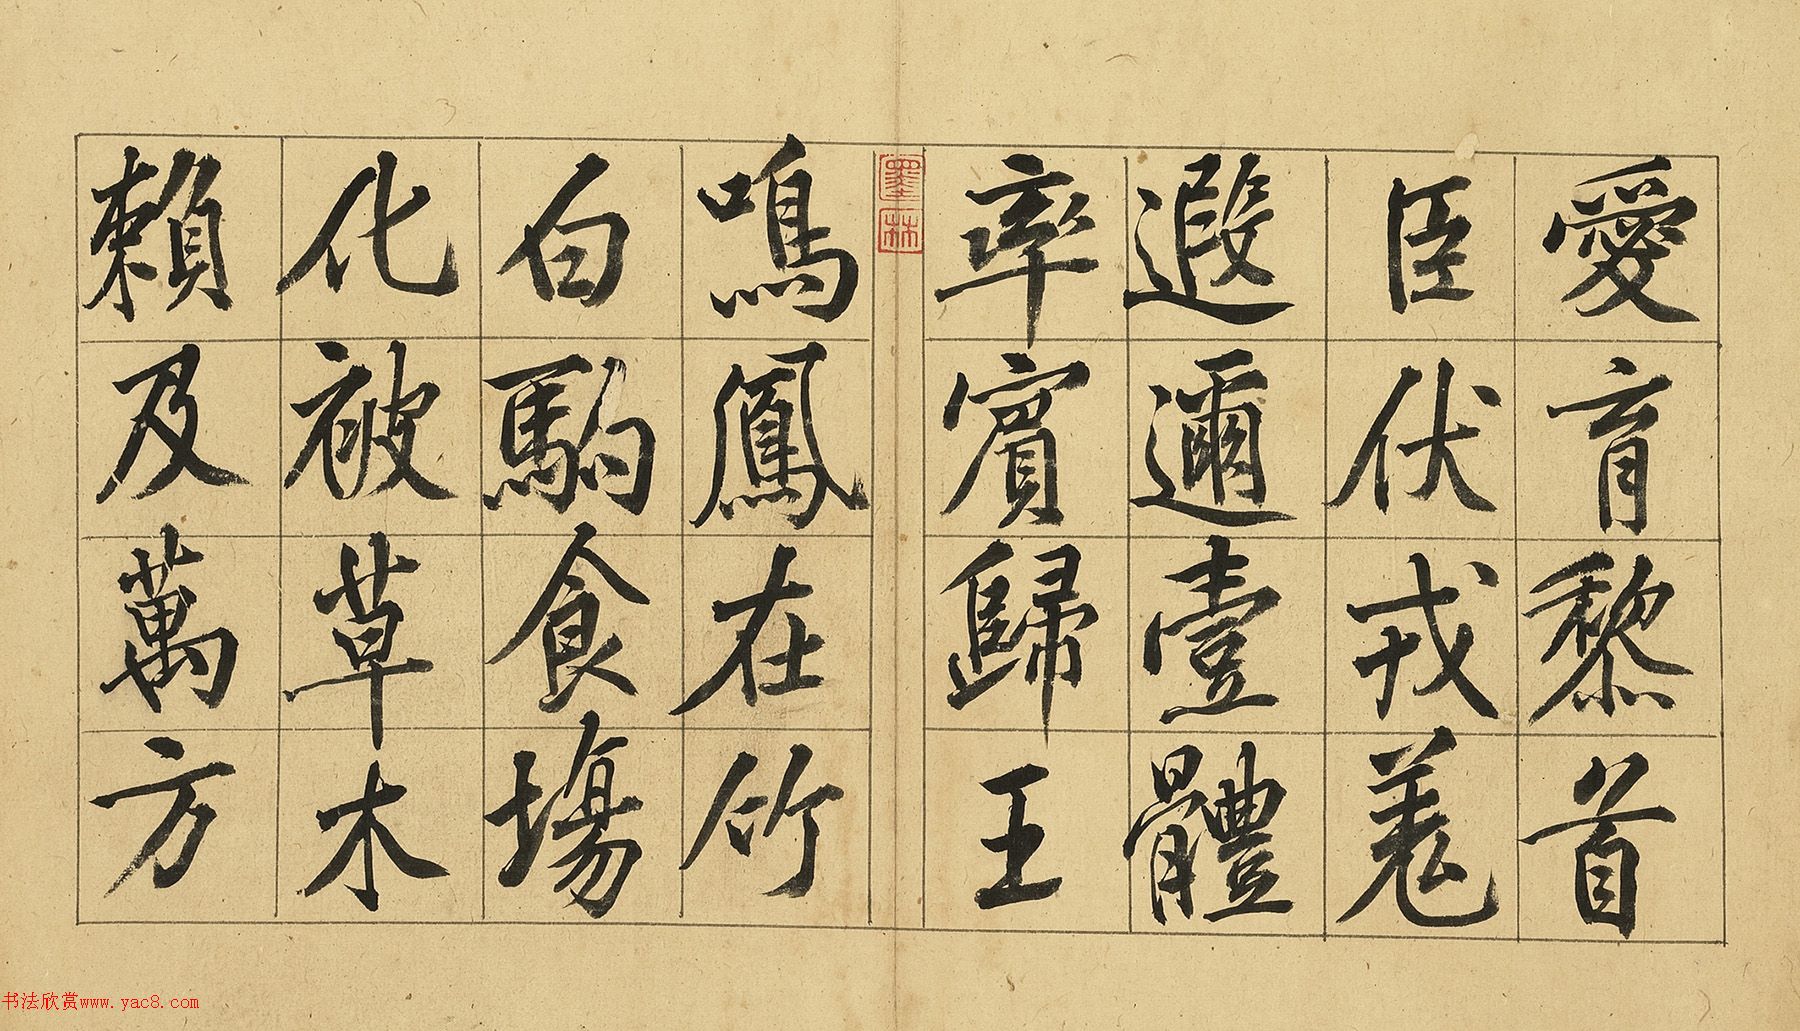 愛育黎首
臣伏戎羌
遐邇壹體
率賓歸王
鳴鳳在竹
白駒食場
化被草木
賴及萬方
墨林
书法欣赏www.yac8.com